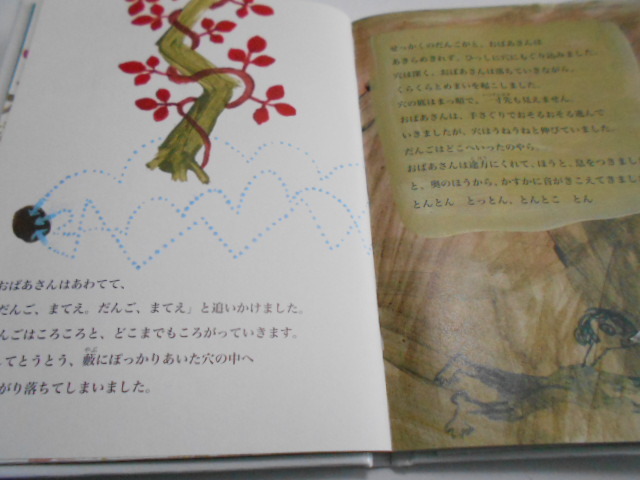 おばあさんはあわてて、
だんご、まてえ。だんご、まてえ」と追いかけました。
んごはころころと、どこまでもころがっていきます。
してとうとう、藪にぽっかりあいた穴の中へ
がり落ちてしまいました。
せっかくのだんごがと、おばあさんは
あきらめきれず、ひっしに穴にもぐり込みました。
穴は深く、おばあさんは落ちていきながら、
くらくらとめまいを起こしました。
穴の底はまっ暗で、一寸先も見えません。
おばあさんは、手さぐりでおそるおそる進んで
いきましたが、穴はうねうねと伸びていました。
だんごはどこへいったのやら。
おばあさんは途方にくれて、ほうと、息をつきました
と、奥のほうから、かすかに音がきこえてきました
とんとん　とっとん、とんとこ　とん